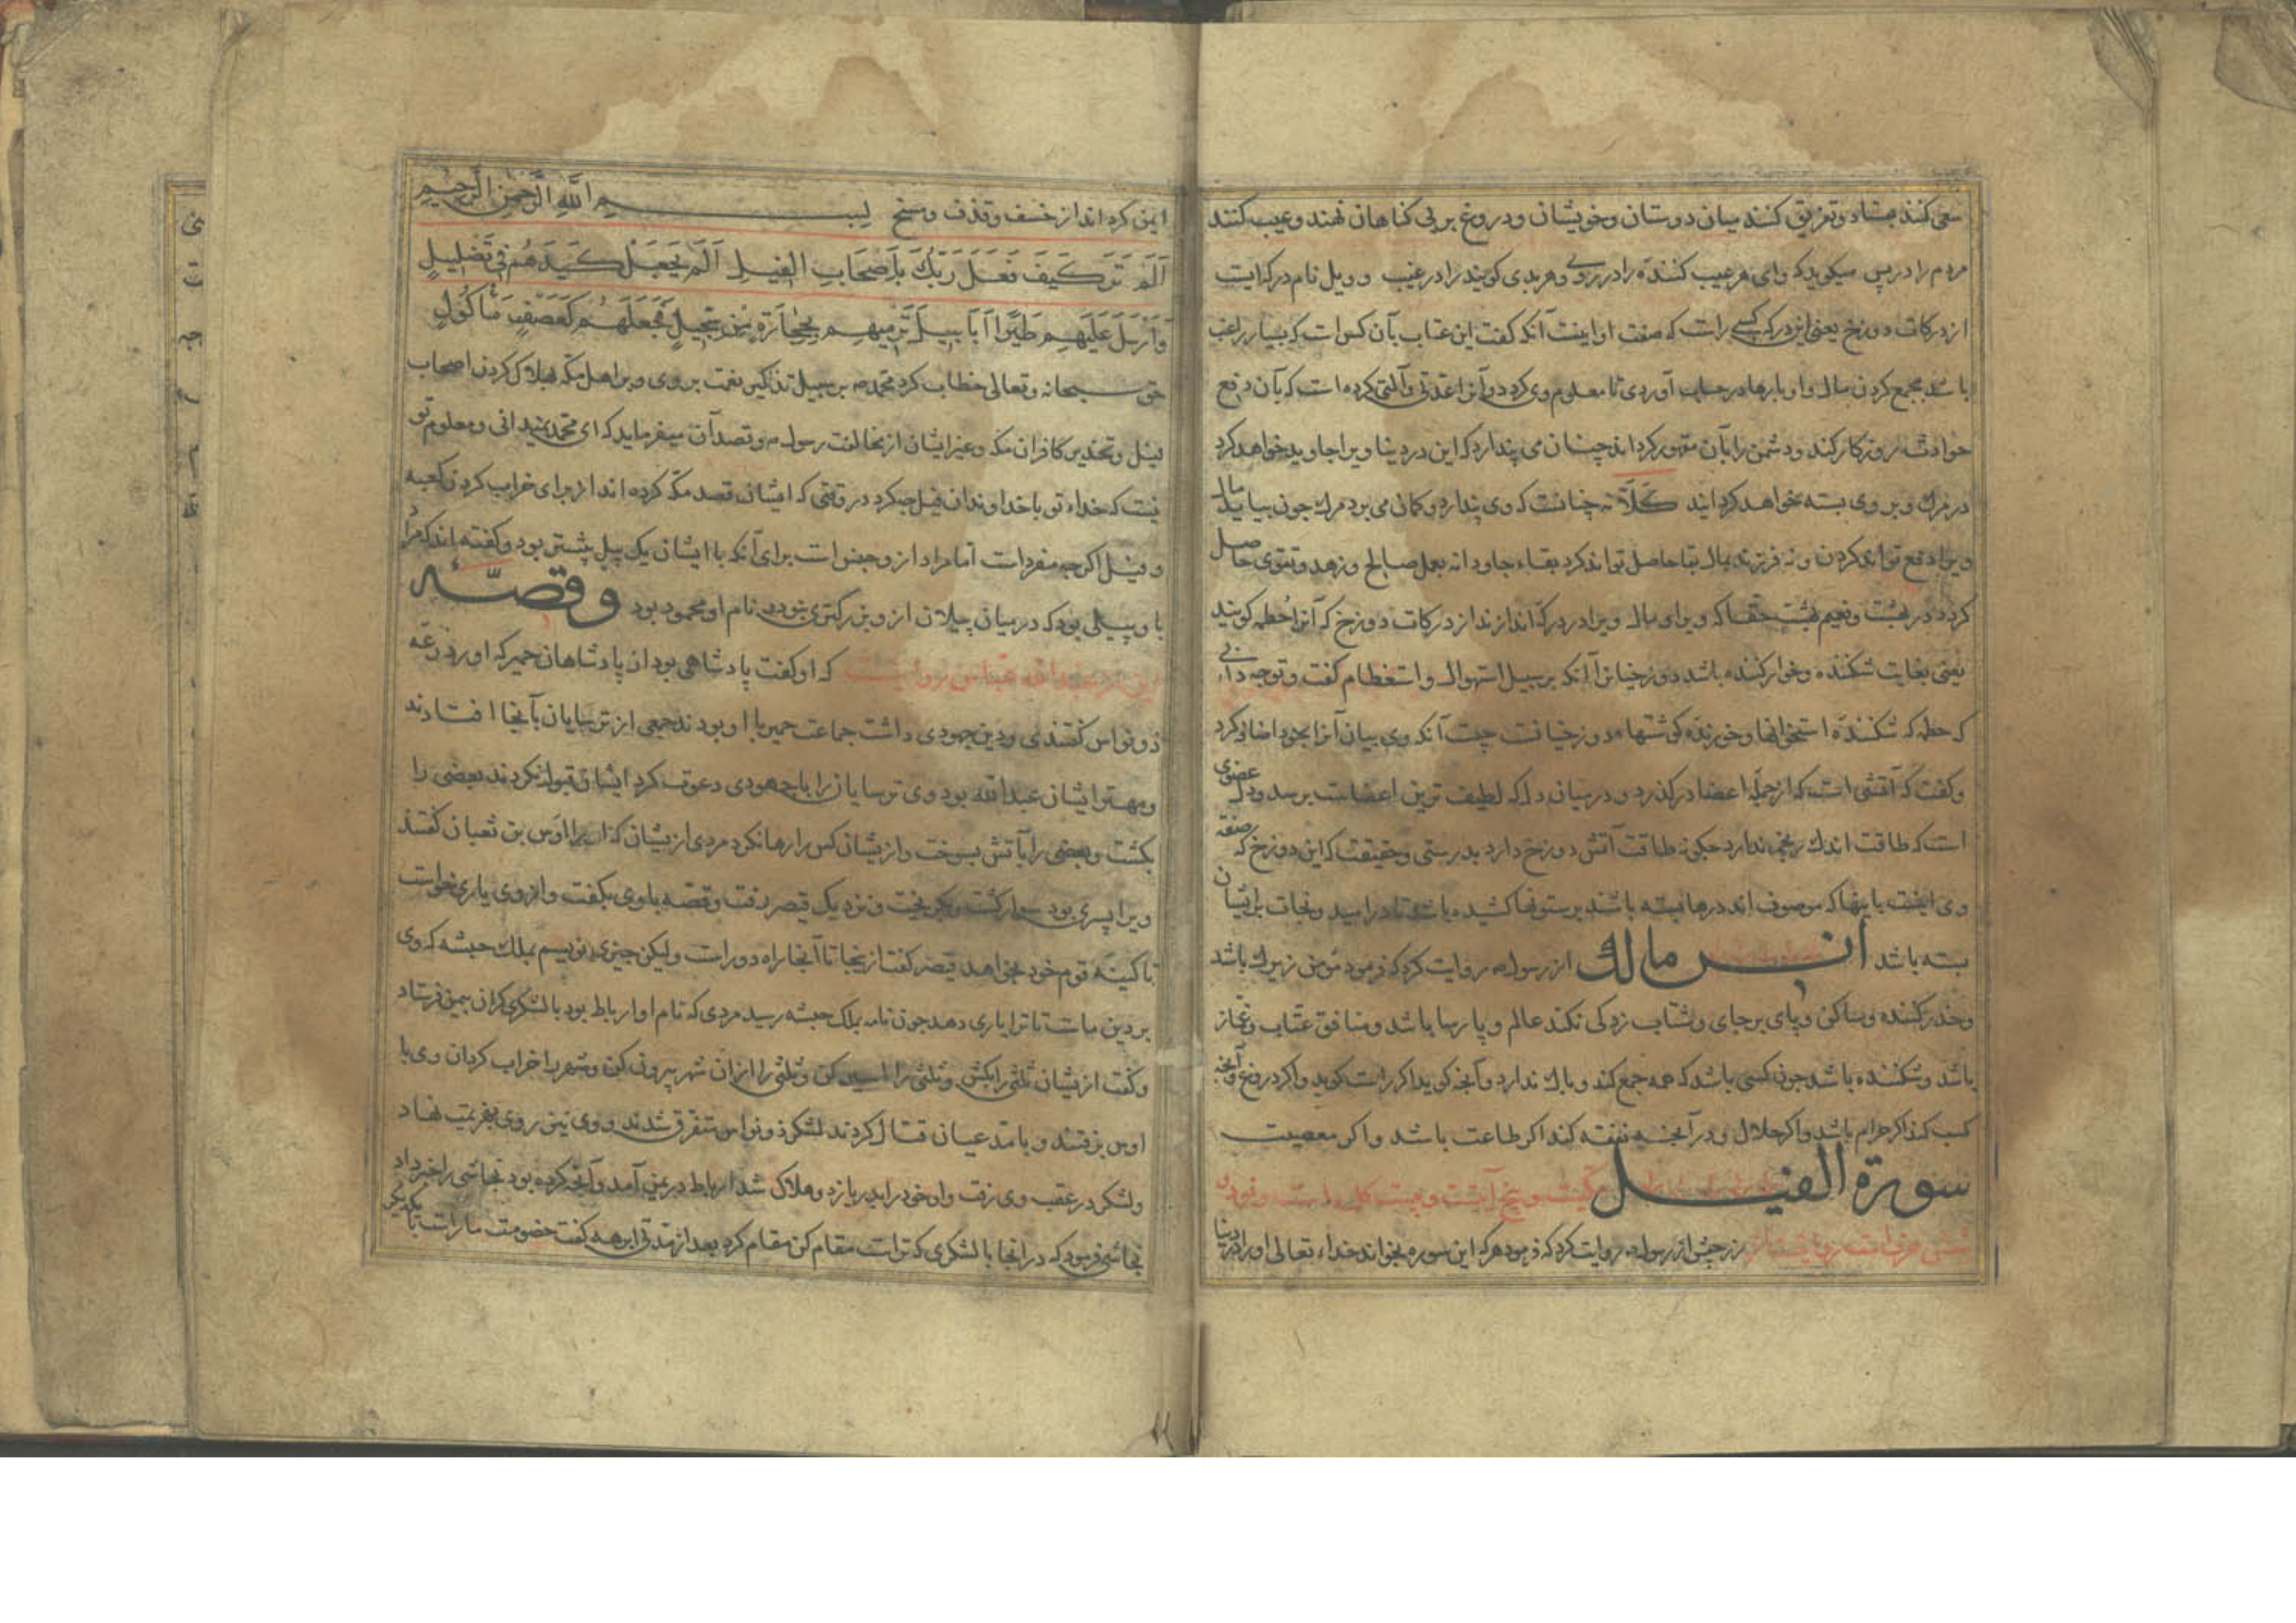 سعی کنند بفساد و تفریق کنند میان دوستان و خویشان و دروغ بر بی کناهان نهند و عیب کنند
مردم را در پس میکوید که وای هر عیب کننده را در روی و هر بدی کوینده را در غیب و ویل نام درکه ایست
از درکات دوزخ یعنی این درکه کسی راست که صفت او اینست آنکه کفت این عتاب بآن کس است که بسیار راغب
باشد بجمع کردن مال و او بارها در حساب آوردی تا معلوم وی کردد و آنرا عدتی و آلتی کرده است که بآن دفع
حوادث روزکار کند و دشمن را بآن مقهور کرداند چنان می پندارد که این در دینا ویرا جاوید خواهد کرد
در مرك بر وی بسته بخواهد کردانید کَلّا نه چنانست که وی پندارد و کمان می برد مرك چون بیاید مال
ویرا دفع تواند کردن و نه فرزند مال بقا حاصل تواند کرد بقاء جاودانه بعمل صالح و زهد و تقوی حاصل
کردد در بهشت و نعیم بهشت حقا که ویرا و مال ویرا در درکه اندازند از درکات دوزخ که آنرا حطمه کویند
یعنی بغایت شکننده و خوار کننده باشد دوزخیانرا آنکه بر سبیل استهوال و استعظام کفت و توچه دانی
که حطمه که شکننده استخوانها و خورنده کوشتهاء دوزخیانست چیست آنکه وی بیان آنرا بخود اضافه کرد
و کفت که آتشی است که از جمله اعضا درکذرد و در میان دل که لطیف ترین اعضاست برسد و دل عضوی
است که طاقت اندك رنجی ندارد چکونه طاقت آتش دوزخ دارد بدرستی و حقیقت که این دوزخ که صفة
وی اینست باینها که موصوف اند درها بسته باشد بر ستونها کشیده باشد تا در امید و نجات بر ایشان
بسته باشد انس مالك از رسول ص روایت کرد که فرمود مؤمن زیرك باشد
و حذر کننده و ساکن و پای بر جای و شتاب زدکی نکند عالم و پارسا باشد و منافق عتاب و غماز
باشد و شکننده باشد چون کسی باشد که همه جمع کند و باك ندارد و آنچه کوید اکر راست کوید و اکر دروغ و آنچه
کسب کند اکر حرام باشد و اکر حلال و در آنچه نفقه کند اکر طاعت باشد و اکر معصیت
سورة الفیل پنج آیتست و بیست کلمه است و نود و
زر حبیش از رسول ص روایت کرد که فرمود هر که این سوره بخواند خداء تعالی او را در دنیا
ایمن کرداند از خسف و قذف و مسخ بسم الله الرحمن الرحیم
اَلَم تَرَ کَیفَ فَعَلَ رَبُّكَ بِاَصحَابِ الفِیلِ اَلَم یَجعَل کَیدَهُم فِی تَضلِیلٍ
وَاَرسَلَ عَلَیهِم طَیرًا اَبَابِیلَ تَرمِیهِم بِحِجَارَةٍ مِن سِجّیلٍ فَجَعَلَهُم کَعَصفٍ مَأکُولٍ
حق سبحانه و تعالی خطاب کرد محمد ص بر سبیل تذکیر نعمت بر وی و بر اهل مکه بهلاك کردن اصحاب
فیل و تحذیر کافران مکه و غیر ایشان از مخالفت رسول ص و قصد آن میفرماید که ای محمد نمیدانی و معلوم تو
نیست که خداء تو با خداوندان فیل چه کرد در وقتی که ایشان قصد مکه کرده اند از برای خراب کردن کعبه
و فیل اکرچه مفرد است اما مراد ازو جنس است برای آنکه با ایشان یك پیل بیشتر بود و کفته اند که مراد
با و پیلی بود که در میان پیلان ازو بزرکتری نبود و نام او محمود بود و قصّه
این از عبد الله عباس روایتست که او کفت پادشاهی بود از پادشاهان حمیر که او را زرعه
ذونواس کفتندی و دین جهودی داشت جماعت حمیر با او بودند جمعی از ترسایان بآنجا افتادند
و مهتر ایشان عبد الله بود وی ترسایان را با جهودی دعوت کرد ایشان قبول نکردند بعضی را
بکشت و بعضی را بآتش بسوخت و ازیشان کس را رها نکرد مردی ازیشان که او را اوس بن ثعبان کفتند
ویرا اسپری بود سوار کشت و بکریخت و نزدیك قیصر رفت و قصه با وی بکفت و ازوی یاری خواست
تا کینه قوم خود بخواهد قیصر کفت ازینجا تا آنجا راه دور است ولیکن چیزی نویسم بملك حبشه که وی
بر دین ماست تا ترا یاری دهد چون نامه بملك حبشه رسید مردی که نام او ارباط بود با لشکری کران بیمن فرستاد
و کفت ازیشان ثلثی را بکش و ثلثی را اسیر کن و ثلثی را از ان شهر بیرون کن و شهر را خراب کردان وی با
اوس برفتند و بآمد عیان قتال کردند لشکر ذونواس متفرق شدند و وی نیز روی بهزیمت نهاد
و لشکر در عقب وی رفت و او خود را بدریا زد و هلاك شد ارباط در یمن آمد و آنچه کرده بود نجاشی را خبر داد
نجاشی فرمود که در انجا با لشکری که تراست مقام کن مقام کرد بعد از مدتی ابرهه کفت خصومت ما راست با یکدیکر